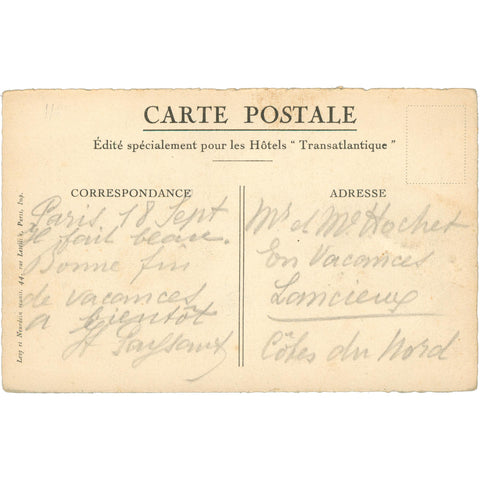 CARTE POSTALE
Édité spécialement pour les Hôtels " Transatlantique "
CORRESPONDANCE
Paris, 18 Sept
Il fait beau.
Bonne fin
de vacances
a bientôt
ADRESSE
Mr et Me Hochet
En Vacances
Lancieux
Côtes du Nord
Levy et Neurdein réunis, 44, rue Letellier, Paris, Imp.